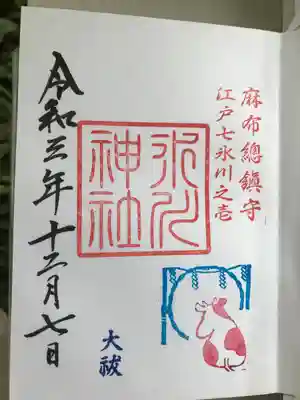 麻布總鎮守
江戸七氷川之壱
氷川神社
大祓
令和三年十二月七日